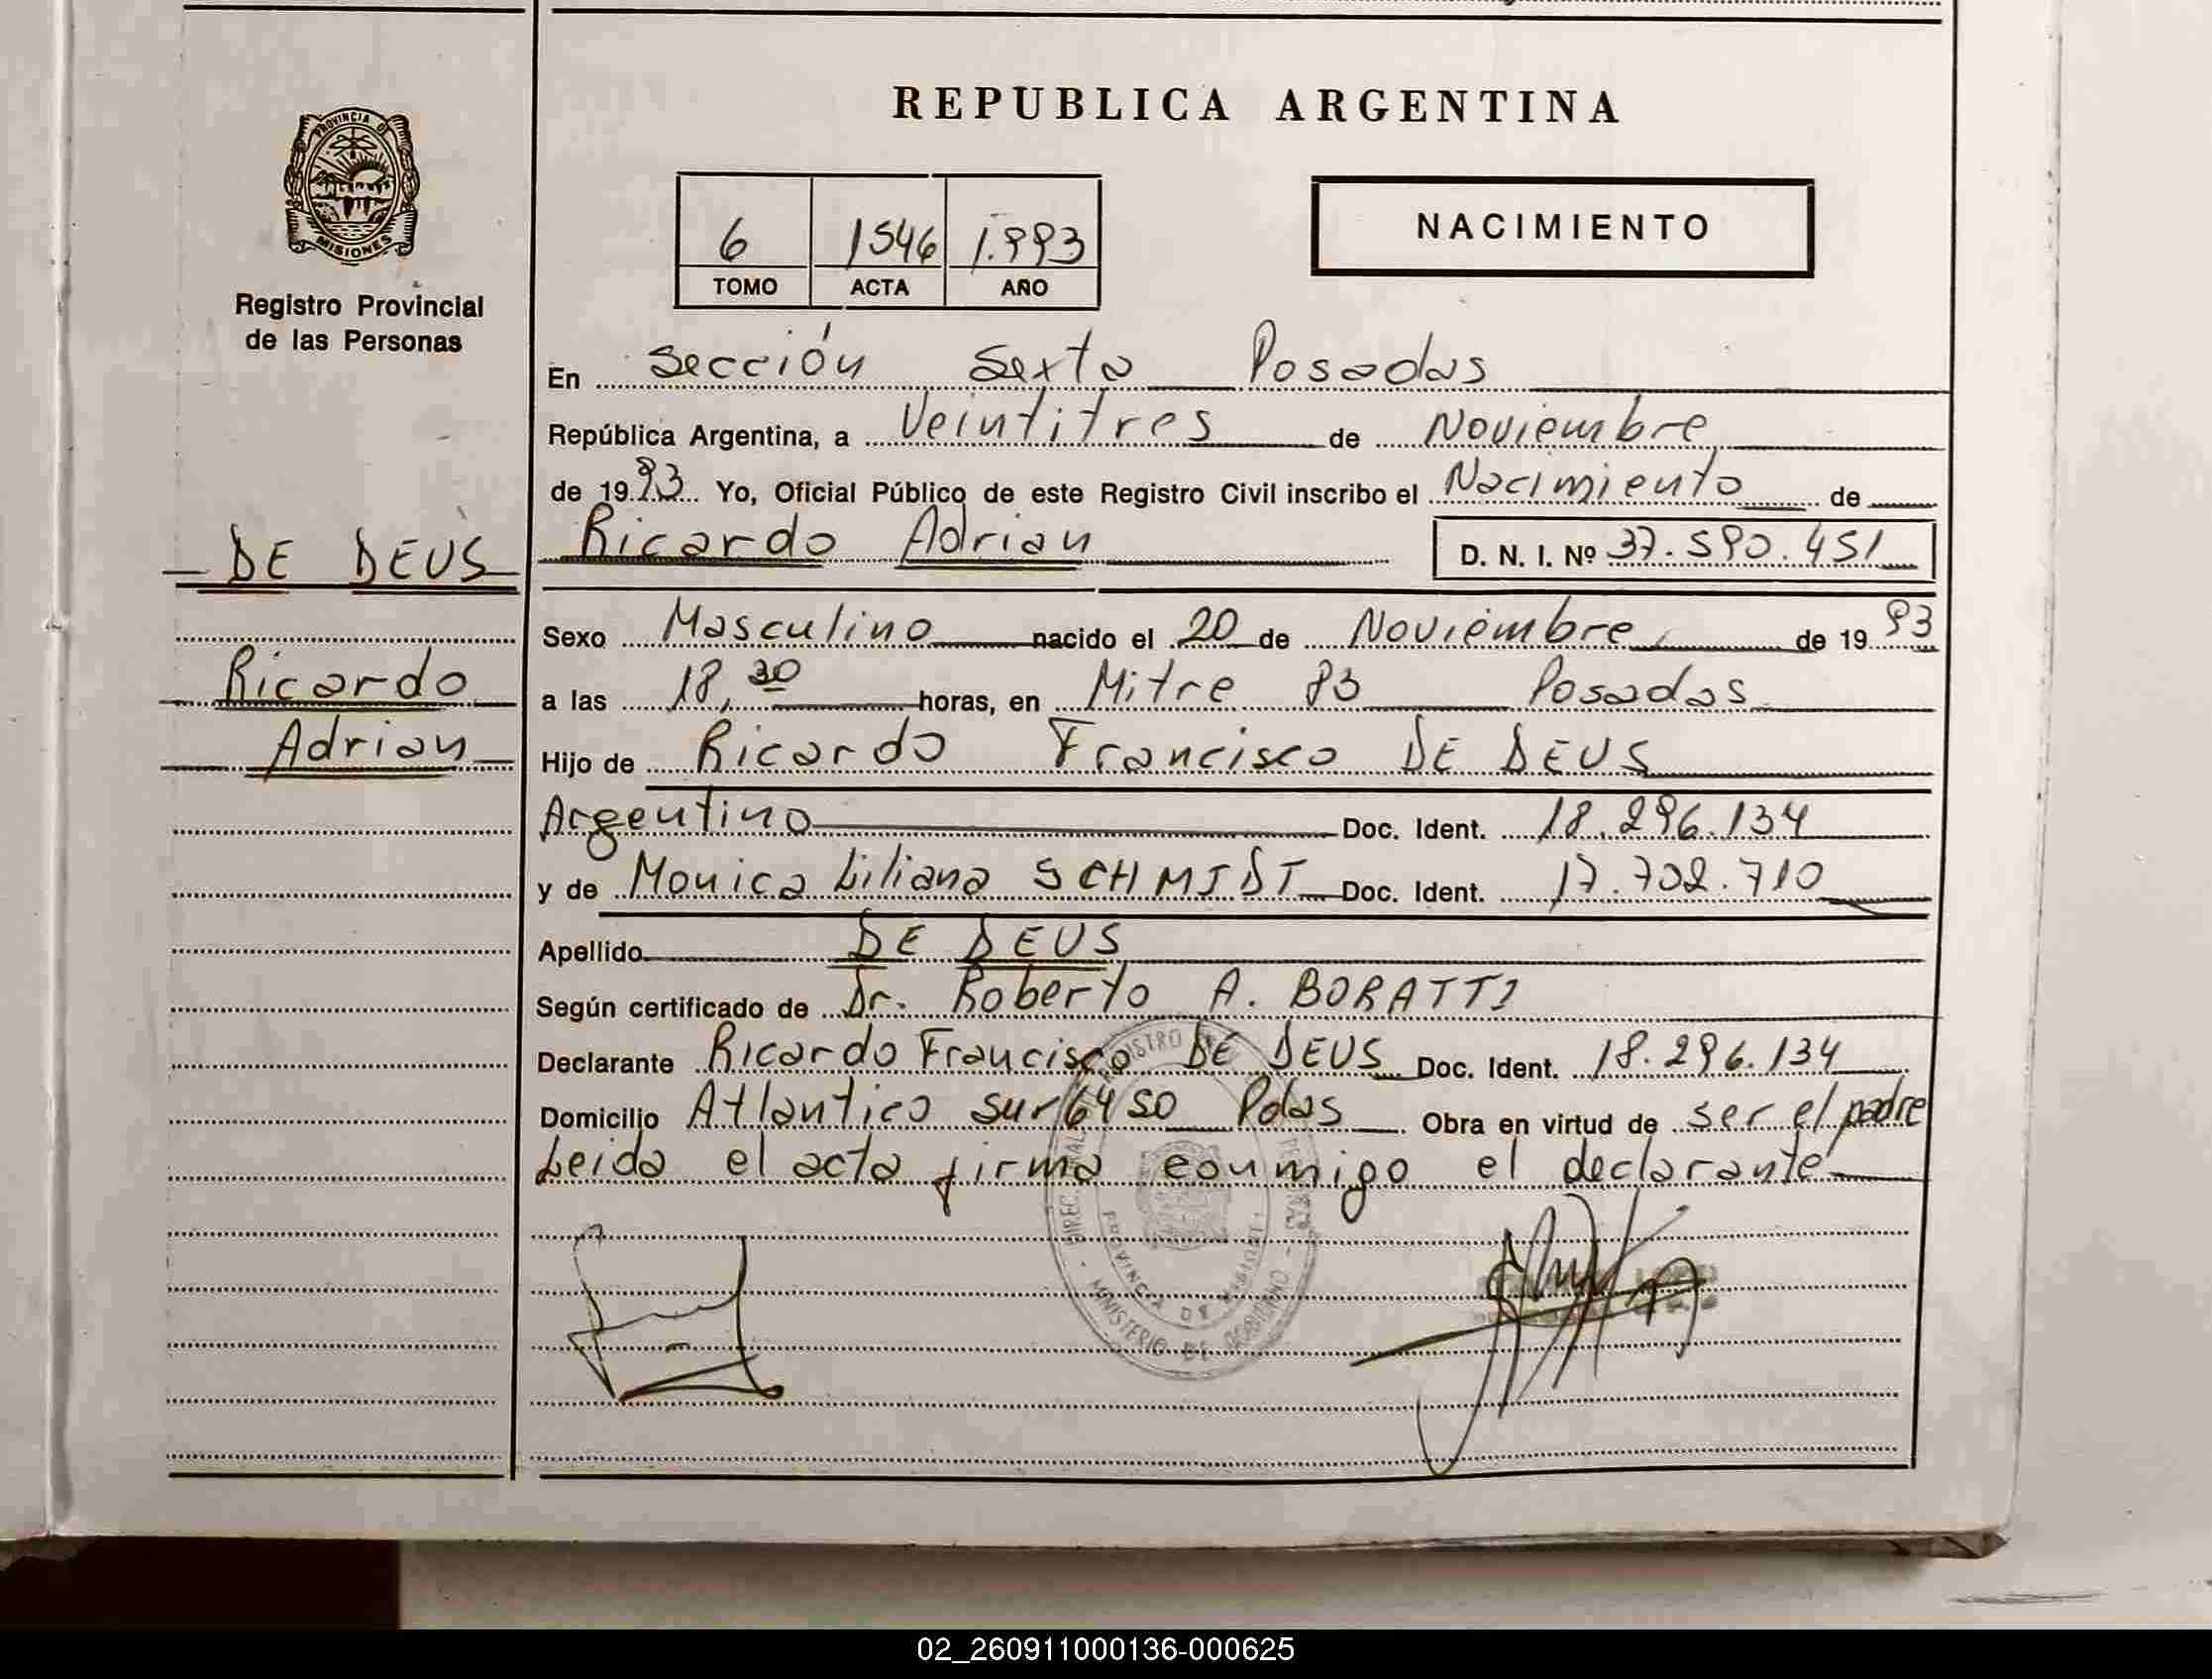 REPUBLICA ARGENTINA
PROVINCIA DE
MISIONES
Registro Provincial
de las Personas
6 1546 1.993
TOMO ACTA AÑO
NACIMIENTO
En Sección Sexta Posadas
República Argentina, a Veintitres de Noviembre
de 1993 Yo, Oficial Público de este Registro Civil inscribo el Nacimiento de
DE DEUS
Ricardo Adrian
D. N. I. Nº 37.590.451
Sexo Masculino nacido el 20 de Noviembre de 1993
Ricardo
Adrian
a las 18,30 horas, en Mitre 93 Posadas
Hijo de Ricardo Francisco DE DEUS
Argentino Doc. Ident. 18.296.134
y de Monica Liliana SCHMIDT Doc. Ident. 17.702.710
Apellido DE DEUS
Según certificado de Dr. Roberto A. BORATTI
Declarante Ricardo Francisco DE DEUS Doc. Ident. 18.296.134
Domicilio Atlantico Sur 6450 Pdas Obra en virtud de ser el padre
Leida el acta firma conmigo el declarante
PROVINCIA DE MISIONES
MINISTERIO DE GOBIERNO
02_260911000136-000625